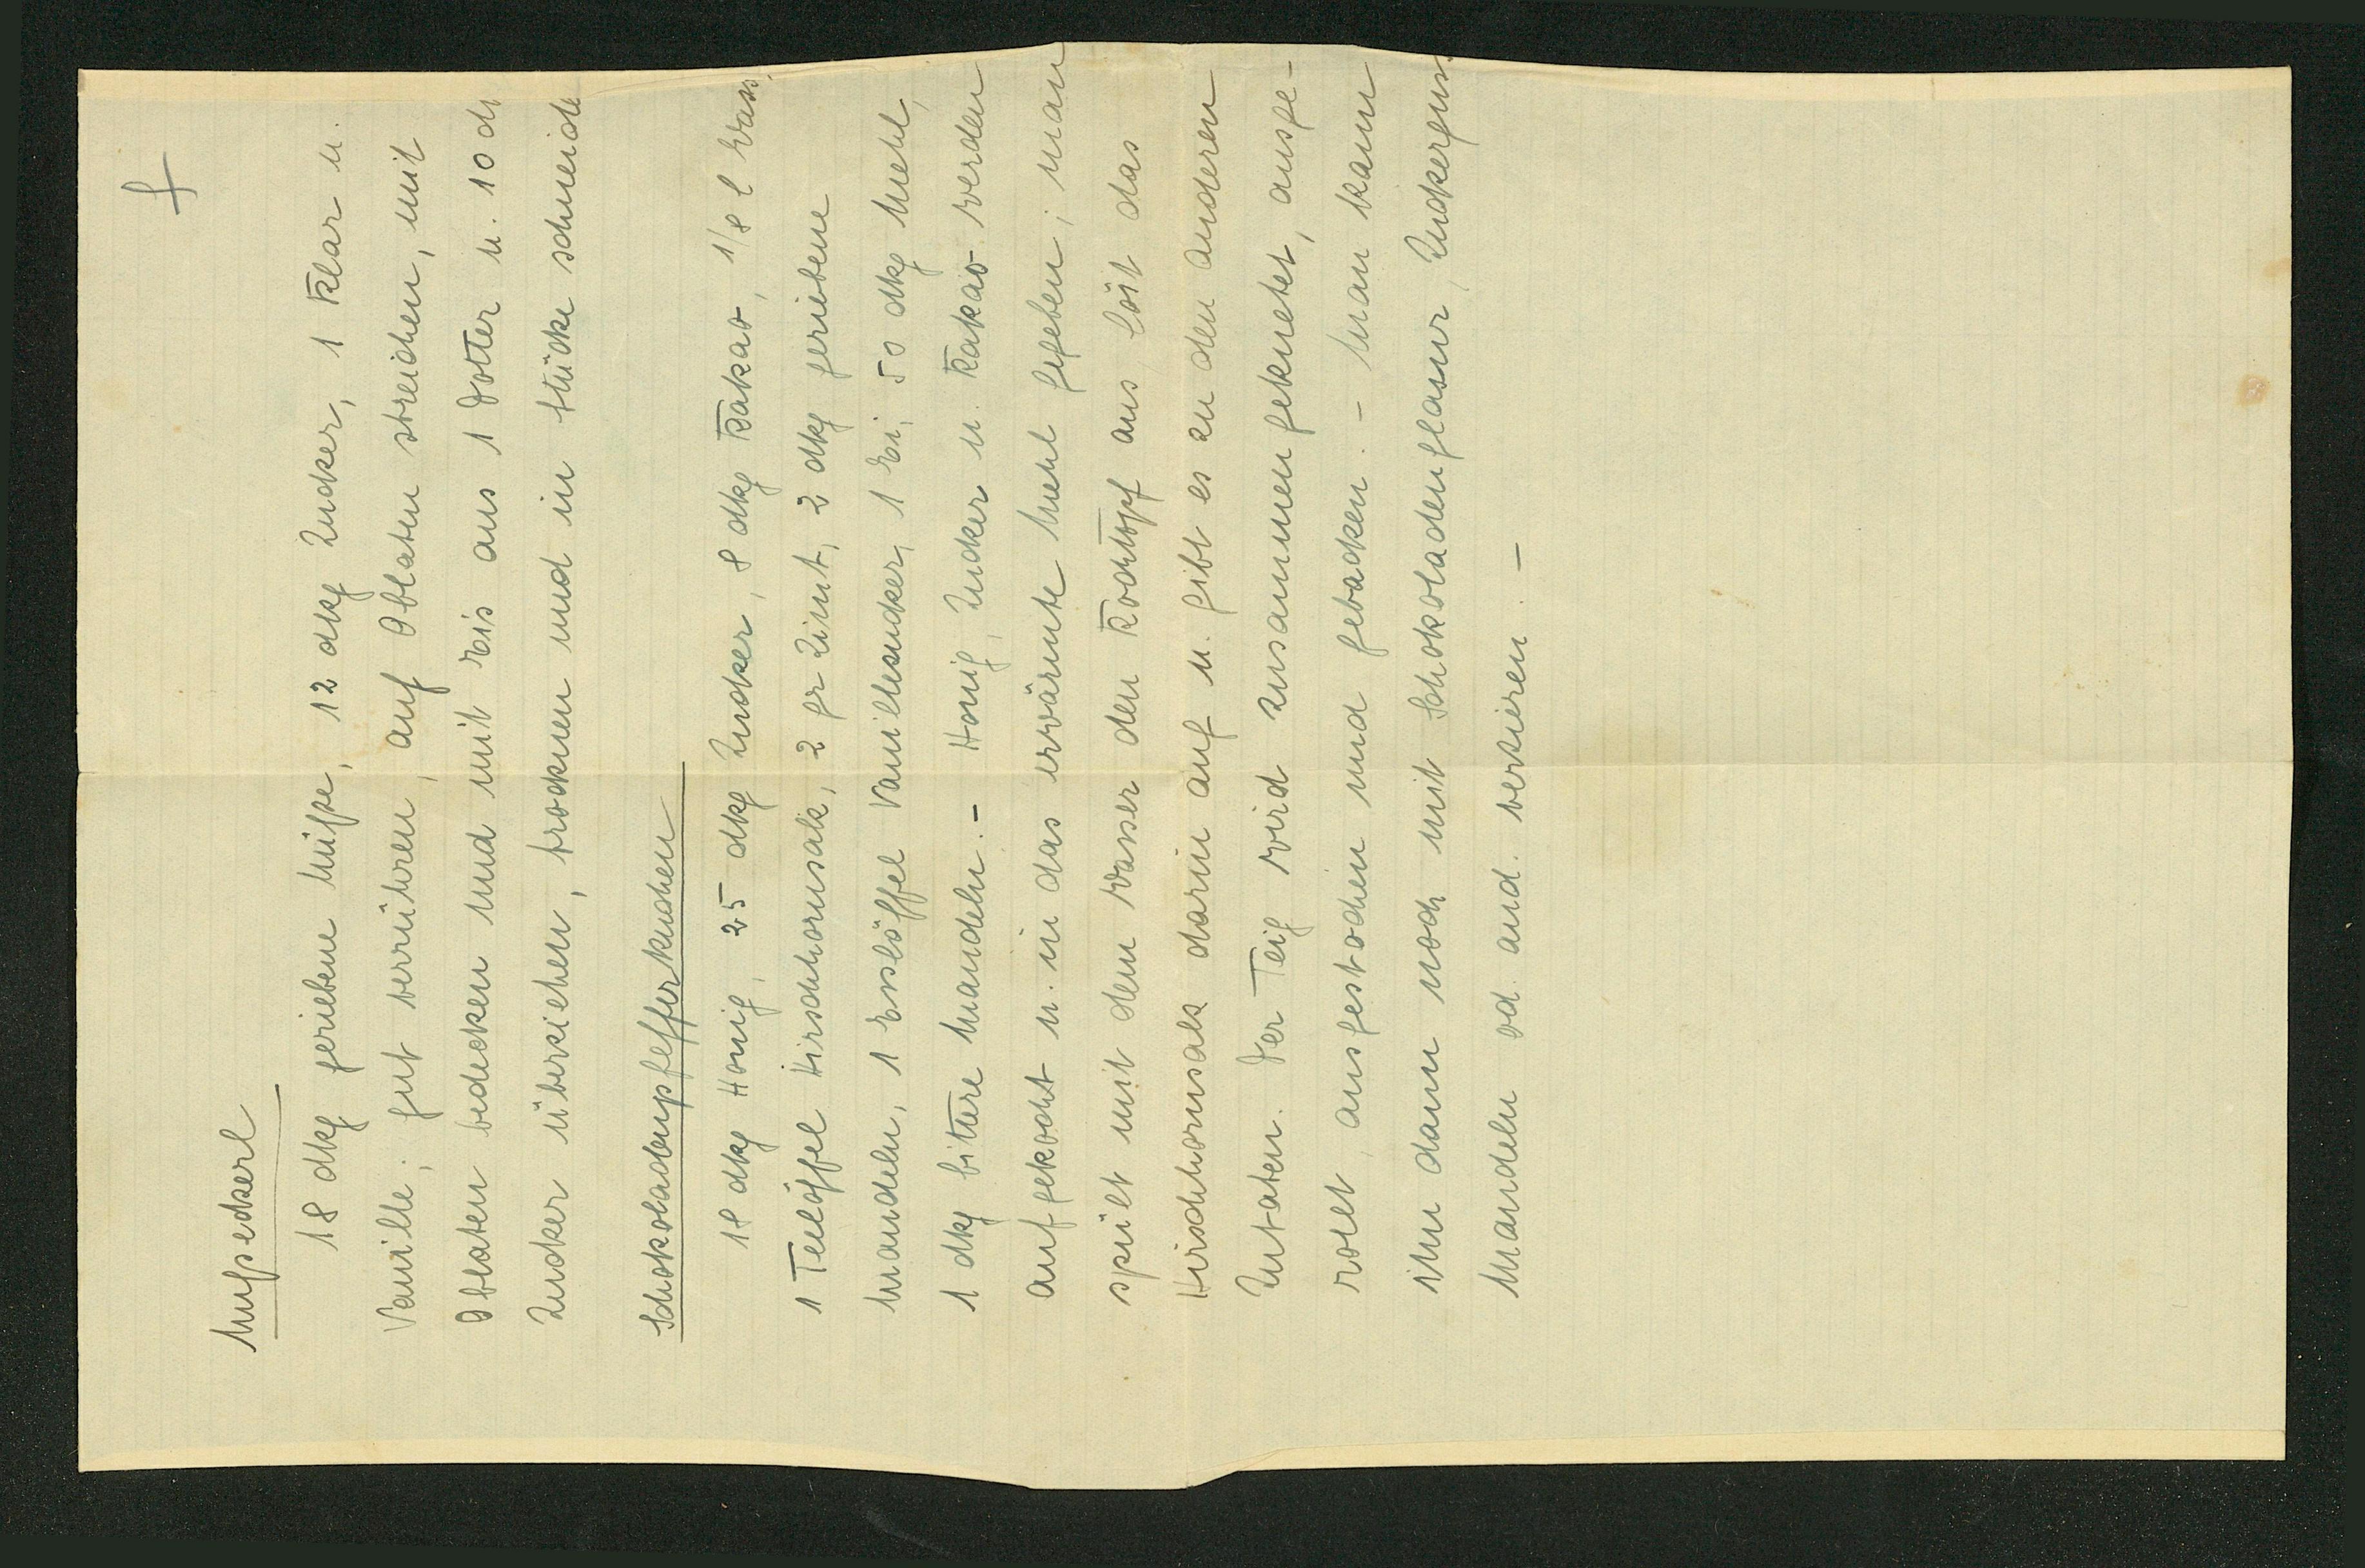 f
Nußeckerl
18 dkg geriebene Nüße, 12 dkg Zucker, 1 Klar u.
Vanille; gut verrühren, auf Oblaten streichen, mit
Oblaten bedecken und mit Eis aus 1 Dotter u. 10 d
Zucker überziehen, trocknen und in Stücke schneide
Schokoladenpfefferkuchen
18 dkg Honig, 25 dkg Zucker, 8 dkg Kakao, 1/8 l Wass
1 Teelöffel Hirschhornsalz, 2 gr Zimt, 2 dkg geriebene
Mandeln, 1 Esslöffel Vanillezucker, 1 Ei, 50 dkg Mehl,
1 dkg bittere Mandeln. - Honig, Zucker u. Kakao werden
aufgekocht u. in das erwärmte Mehl gegeben; man
spült mit dem Wasser den Kochtopf aus, löst das
Hirschhornsalz darin auf u. gibt es zu den anderen
Zutaten. Der Teig wird zusammengeknetet, ausge-
rollt, ausgestochen und gebacken. - Man kann
ihn dann noch mit Schokoladenglasur, Zuckerguss
Mandeln od. and. verzieren. -